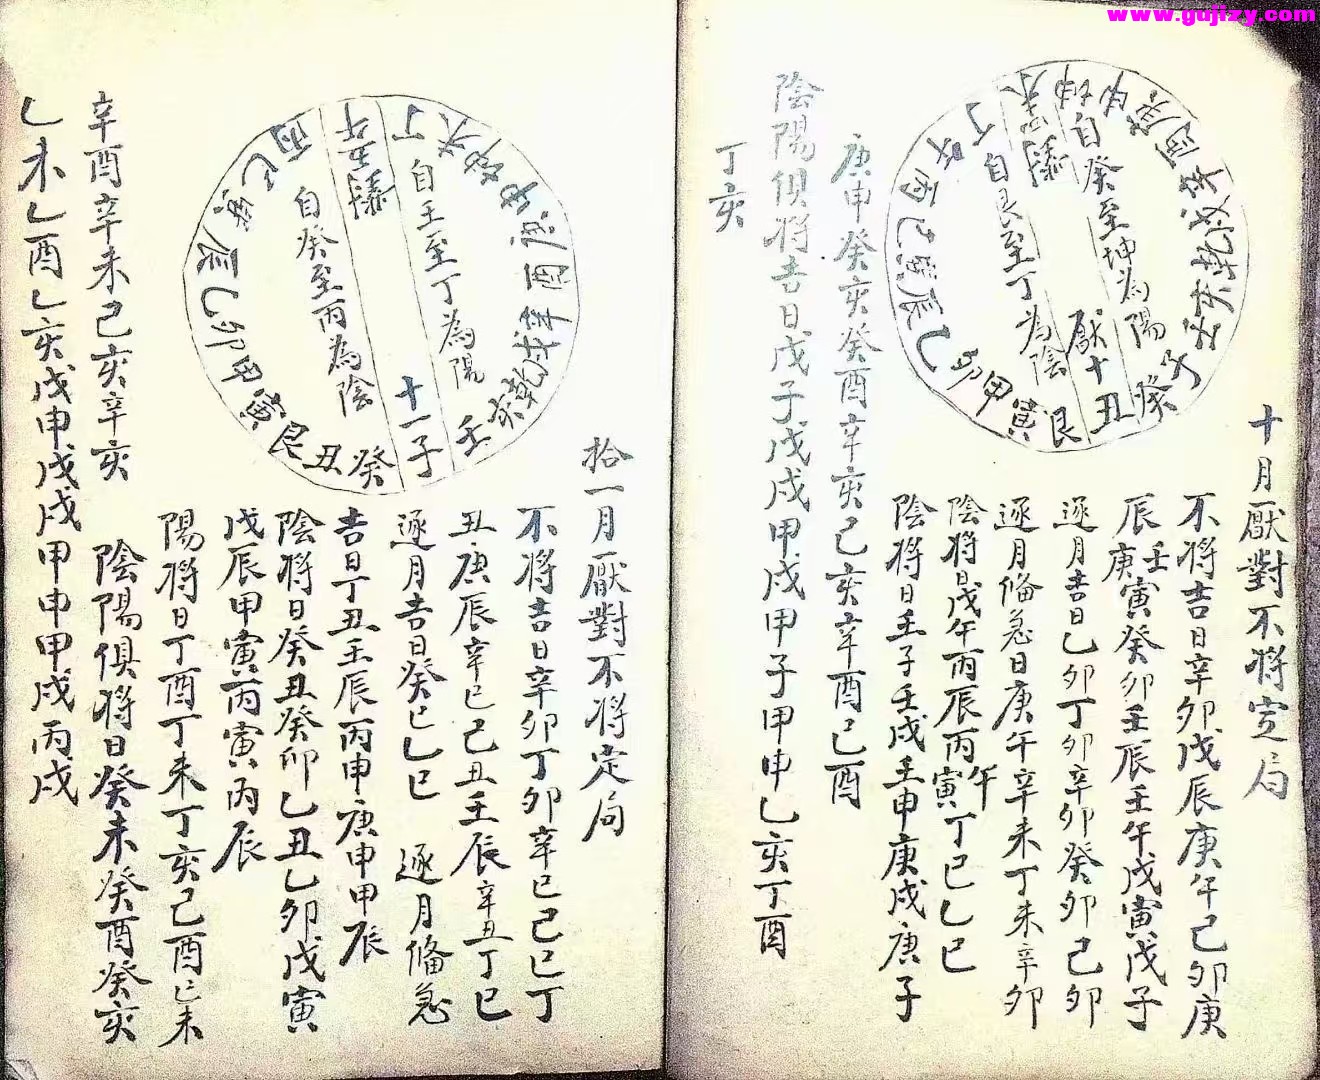 www.gujizy.com
十月厭對不將定局
不將吉日辛卯戊辰庚午己卯庚
辰庚壬寅癸卯壬辰壬午戊寅戊子
逐月吉日乙卯丁卯辛卯癸卯己卯
逐月俻急日庚午辛未丁未辛卯
陰將日戊午丙辰丙寅午丁巳乙巳
陰將日壬子壬戌壬申庚戌庚子
庚申癸亥癸酉辛亥己亥辛酉己酉
陰陽俱將吉日戊子戊戌甲戌甲子甲申乙亥丁酉
丁亥
自癸至坤為陽
厭十
自艮至丁為陰
丑癸子壬亥乾戌辛酉庚申坤未丁午丙巳巽辰乙卯甲寅艮
拾一月厭對不將定局
不將吉日辛卯丁卯辛巳己巳丁
丑庚辰辛巳己丑壬辰辛丑丁巳
逐月吉日癸巳乙巳 逐月俻急
吉日丁丑壬辰丙申庚申甲辰
陰將日癸丑癸卯乙丑乙卯戊寅
戊辰甲寅丙寅丙辰
陽將日丁酉丁未丁亥己酉己未
陰陽俱將日癸未癸酉癸亥
辛酉辛未己亥辛亥
乙未乙酉乙亥戊申戊戌甲申甲戌丙戌
自壬至丁為陽
十一子
自癸至丙為陰
壬亥乾戌辛酉庚申坤未丁午丙巳巽辰乙卯甲寅艮丑癸